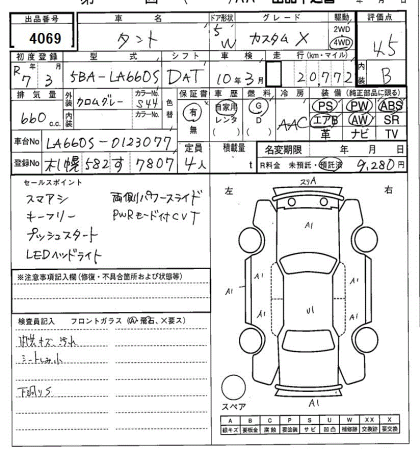 出品番号 車名 ドア形状 グレード 駆動 評価点
4069 タント 5 W カスタム X 2WD 4WD 4.5
初度登録 型式 シフト 車検 走行(km・マイル) 内装
R 7年 3月 5BA-LA660S DAT 10年3月 20,772 B
排気量 外装色 カラーNo. 色替 保証書 車歴 燃料 冷房 装備(純正部品に限る)
660 c.c. クロムグレー S44 有 無 自家用 レンタ G D AAC PS PW ABS
エアB AW SR
革 ナビ TV
車台No LA660S-0123077 定員 積載量 名変期限 年 月 日
登録No 札幌 582 す 7807 4人 t R料金 未預託・預託済 9,280円
セールスポイント
スマアシ 両側パワースライド
キーフリー PWRモード付CVT
プッシュスタート
LEDヘッドライト
※注意事項記入欄(修復・不具合箇所および状態等)
検査員記入 フロントガラス(A・飛石、×要ス)
内装キズ 汚れ
左 右
A1
A1 A1 A1
U1
A1 A1
A1
スペア
A B C P S U W XX X